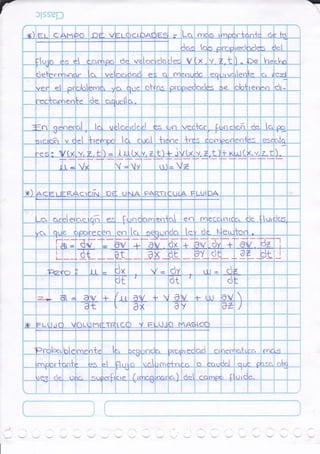 *) EL CAMPO DE VELOCIDADES : La más importante de to
das las propiedades del
flujo es el campo de velocidades V(x,y,z,t). De hecho
determinar la velocidad es a menudo equivalente a resol
ver el problema ya que otras propiedades se obtienen di-
rectamente de aquella.
En general, la velocidad es un vector, función de la po
sición y del tiempo la cual tiene tres componentes escala
res: V(x,y,z,t) = iu(x,y,z,t)+jv(x,y,z,t)+kw(x,y,z,t).
u = Vx V = Vy w = Vz
*) ACELERACIÓN DE UNA PARTICULA FLUIDA
La aceleración es fundamental en mecánica de fluidos,
ya que aparecen en la segunda ley de Newton.
a = dv/dt = ∂v/∂t + ∂v/∂x dx/dt + ∂v/∂y dy/dt + ∂v/∂z dz/dt
Pero: u = dx/dt , v = dy/dt , w = dz/dt
a = ∂v/∂t + (u ∂v/∂x + v ∂v/∂y + w ∂v/∂z)
* FLUJO VOLUMETRICO Y FLUJO MASICO
Probablemente la segunda propiedad cinemática más
importante es el flujo volumetrico o caudal que pasa atra
vez de una superficie (imaginaria) del campo fluido.